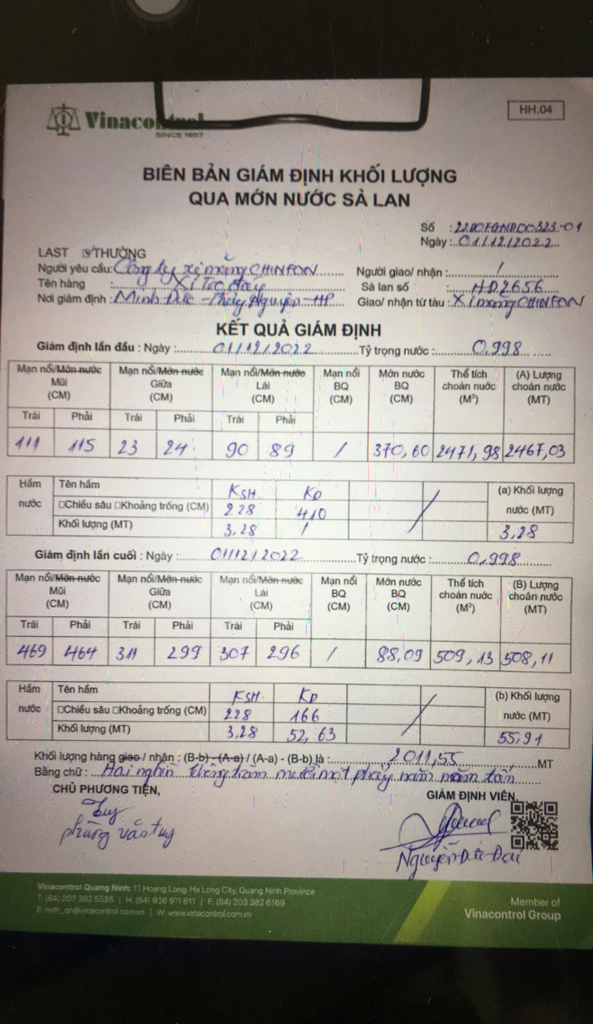 Vinacontrol
SINCE 1957
HH.04
BIÊN BẢN GIÁM ĐỊNH KHỐI LƯỢNG
QUA MỚN NƯỚC SÀ LAN
Số :
Ngày: 01/12/2022
LAST ☑THƯỜNG
Người yêu cầu: Công ty xi măng CHINFON Người giao/ nhận : /
Tên hàng : Xỉ Sà lan số : HD2656
Nơi giám định : Minh Đức - Thủy Nguyên - HP Giao/ nhận từ tàu : Xi măng CHINFON
KẾT QUẢ GIÁM ĐỊNH
Giám định lần đầu : Ngày : 01/12/2022 Tỷ trọng nước : 0,998
Mạn nổi/Mớn nước Mạn nổi/Mớn nước Mạn nổi/Mớn nước Mạn nổi Mớn nước Thể tích (A) Lượng
Mũi Giữa Lái BQ BQ choán nước choán nước
(CM) (CM) (CM) (CM) (CM) (M³) (MT)
Trái Phải Trái Phải Trái Phải
111 115 23 24 90 89 / 370,60 2471,98 2467,03
Hầm Tên hầm KSH KD (a) Khối lượng
nước □Chiều sâu □Khoảng trống (CM) 228 410 nước (MT)
Khối lượng (MT) 3,28 / 3,28
Giám định lần cuối : Ngày : 01/12/2022 Tỷ trọng nước : 0,998
Mạn nổi/Mớn nước Mạn nổi/Mớn nước Mạn nổi/Mớn nước Mạn nổi Mớn nước Thể tích (B) Lượng
Mũi Giữa Lái BQ BQ choán nước choán nước
(CM) (CM) (CM) (CM) (CM) (M³) (MT)
Trái Phải Trái Phải Trái Phải
469 464 311 299 307 296 / 88,09 509,13 508,11
Hầm Tên hầm KSH KD (b) Khối lượng
nước □Chiều sâu □Khoảng trống (CM) 228 166 nước (MT)
Khối lượng (MT) 3,28 52,63 55,91
Khối lượng hàng giao / nhận : (B-b) - (A-a) / (A-a) - (B-b) là : 2011,55 MT
Bằng chữ : Hai nghìn không trăm mười một phẩy năm năm tấn
CHỦ PHƯƠNG TIỆN, GIÁM ĐỊNH VIÊN,
phùng văn tuy
Nguyễn Đức Đại
Vinacontrol Quang Ninh: 11 Hoang Long, Ha Long City, Quang Ninh Province
Member of
Vinacontrol Group
W: www.vinacontrol.com.vn